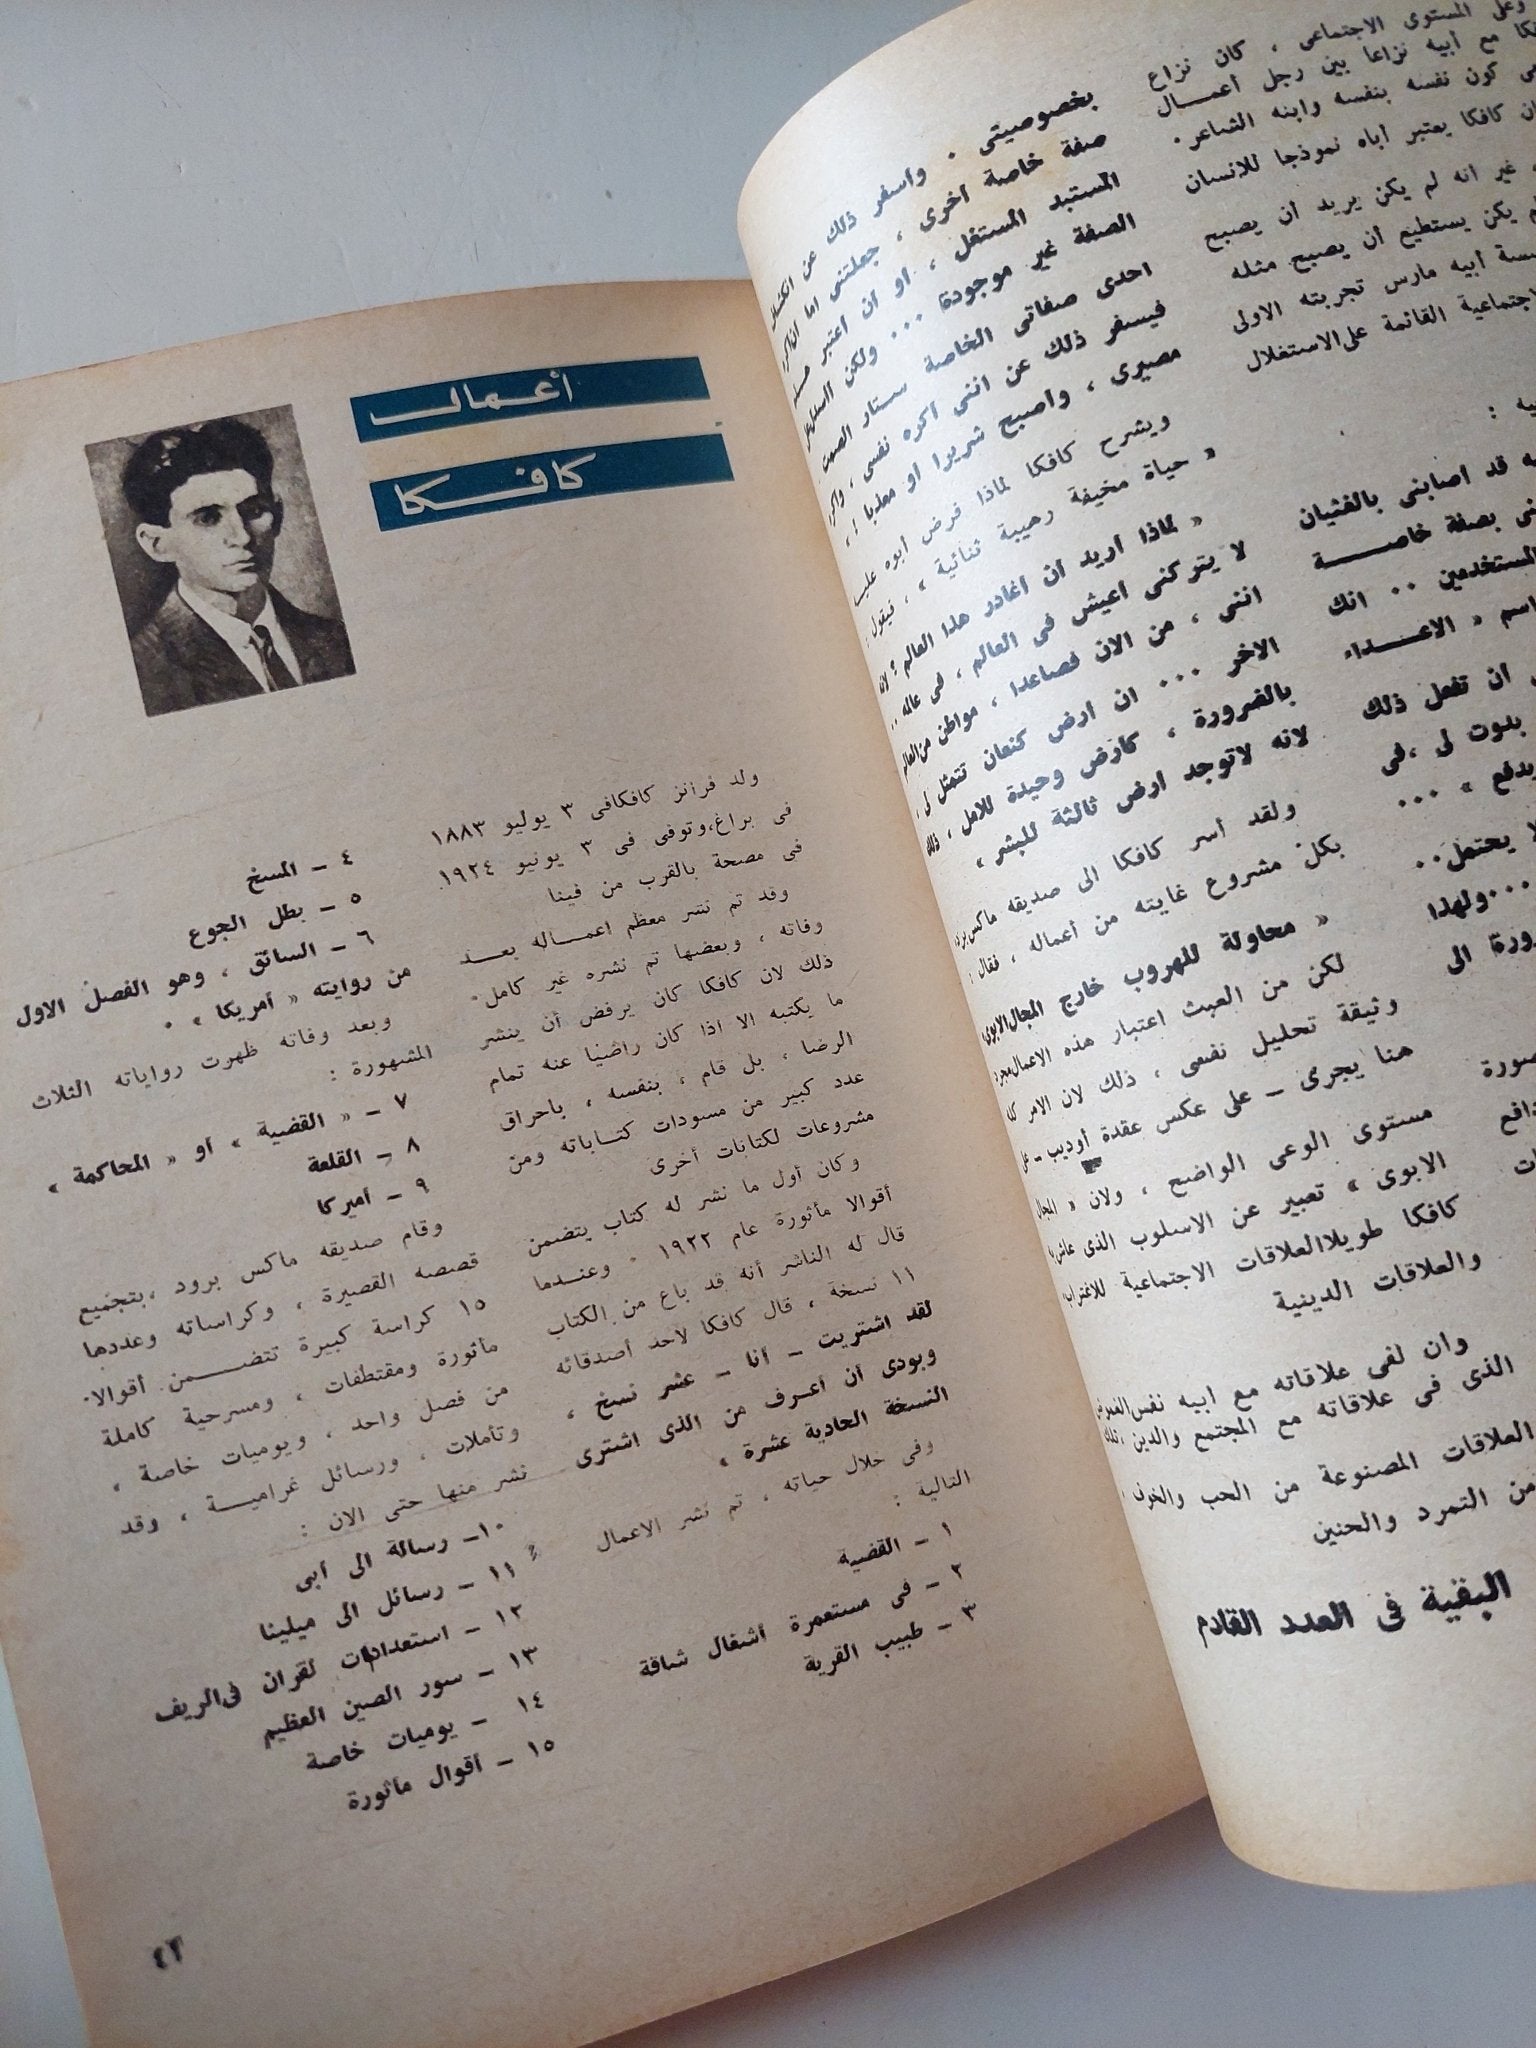 وعلى المستوى الاجتماعى ، كان نزاع
مع أبيه نزاعا بين رجل أعمــال
كون نفسه بنفسه وابنه الشاعر .
كافكا يعتبر أباه نموذجا للانسان
غير انه لم يكن يريد أن يصبح
يكن يستطيع أن يصبح مثله
أبيه مارس تجربته الاولى
القائمة على الاستغلال
قد اصابنى بالغثيان
بصفة خاصــــة
المستخدمين .. انك
اسم « الاعـــداء
ان تفعل ذلك
بدوت لى ، فى
يدفع » ...
لا يحتمل ..
... ولهذا
الى
بخصوصيتى . واسفر ذلك عن
صفة خاصة أخرى ، جعلتنى اما أن
المستبد المستغل ، أو ان أعتبر
الصفة غير موجودة ... ولكن
احدى صفاتى الخاصة ستار الصمت
فيسفر ذلك عن اننى أكره نفسى ، وأكره
مصيرى ، وأصبح شريرا أو معذبا
ويشرح كافكا لماذا فرض أبوه عليه
« حياة مخيفة رهيبة ثنائية » ، فيقول :
« لماذا أريد أن أغادر هذا العالم ؟ لأنه
لا يتركنى أعيش فى العالم ، فى عالمه ..
اننى ، من الآن فصاعدا ، مواطن من العالم
الآخر ... ان أرض كنعان تتمثل لى ،
بالضرورة ، كأرض وحيدة للأمل ، ذلك
لانه لا توجد أرض ثالثة للبشر »
ولقد أسر كافكا الى صديقه ماكس برود
بكل مشروع غايته من أعماله ، فقال :
« محاولة للهروب خارج المجال الابوى
لكن من العبث اعتبار هذه الاعمال مجرد
وثيقة تحليل نفسى ، ذلك لان الامر كله
هنا يجرى - على عكس عقدة أوديب - على
مستوى الوعى الواضح ، ولان « المجال
الابوى » تعبير عن الاسلوب الذى عاش به
كافكا طويلا العلاقات الاجتماعية للاغتراب
والعلاقات الدينية
وان لفى علاقاته مع ابيه نفس الغموض
الذى فى علاقاته مع المجتمع والدين ، تلك
العلاقات المصنوعة من الحب والخوف ،
من التمرد والحنين
البقية فى العدد القادم
أعمال
كافكا
ولد فرانز كافكا فى ٣ يوليو ١٨٨٣
فى براغ ، وتوفى فى ٣ يونيو ١٩٢٤
فى مصحة بالقرب من فينا
وقد تم نشر معظم اعمــاله بعــد
وفاته ، وبعضها تم نشره غير كامل .
ذلك لان كافكا كان يرفض أن ينشر
ما يكتبه الا اذا كان راضيا عنه تمام
الرضا ، بل قام ، بنفسه ، باحراق
عدد كبير من مسودات كتــاباته ومن
مشروعات لكتابات أخرى
وكان أول ما نشر له كتاب يتضمن
أقوالا مأثورة عام ١٩٢٢ . وعنــدما
قال له الناشر أنه قد باع من الكتاب
١١ نسخة ، قال كافكا لاحد أصدقائه
لقد اشتريت - أنا - عشر نسخ ،
وبودى أن أعرف من الذى اشترى
النسخة الحادية عشرة »
وفى خلال حياته ، تم نشر الاعمال
التالية :
١ - القضية
٢ - فى مستعمرة أشغال شاقة
٣ - طبيب القرية
٤ - المسخ
٥ - بطل الجوع
٦ - السائق ، وهو الفصل الاول
من روايته « أمريكا » .
وبعد وفاته ظهرت رواياته الثلاث
المشهورة :
٧ - « القضية » أو « المحاكمة »
٨ - القلعة
٩ - أميركا
وقام صديقه ماكس برود ، بتجميع
قصصه القصيرة ، وكراساته وعددها
١٥ كراسة كبيرة تتضــمن أقوالا
مأثورة ومقتطفات ، ومسرحية كاملة
من فصل واحد ، ويوميات خاصة ،
وتأملات ، ورسائل غراميــة ، وقد
نشر منها حتى الان :
١٠ - رسالة الى أبى
١١ - رسائل الى ميلينا
١٢ - استعدادات لقران فى الريف
١٣ - سور الصين العظيم
١٤ - يوميات خاصة
١٥ - أقوال مأثورة
٤٣